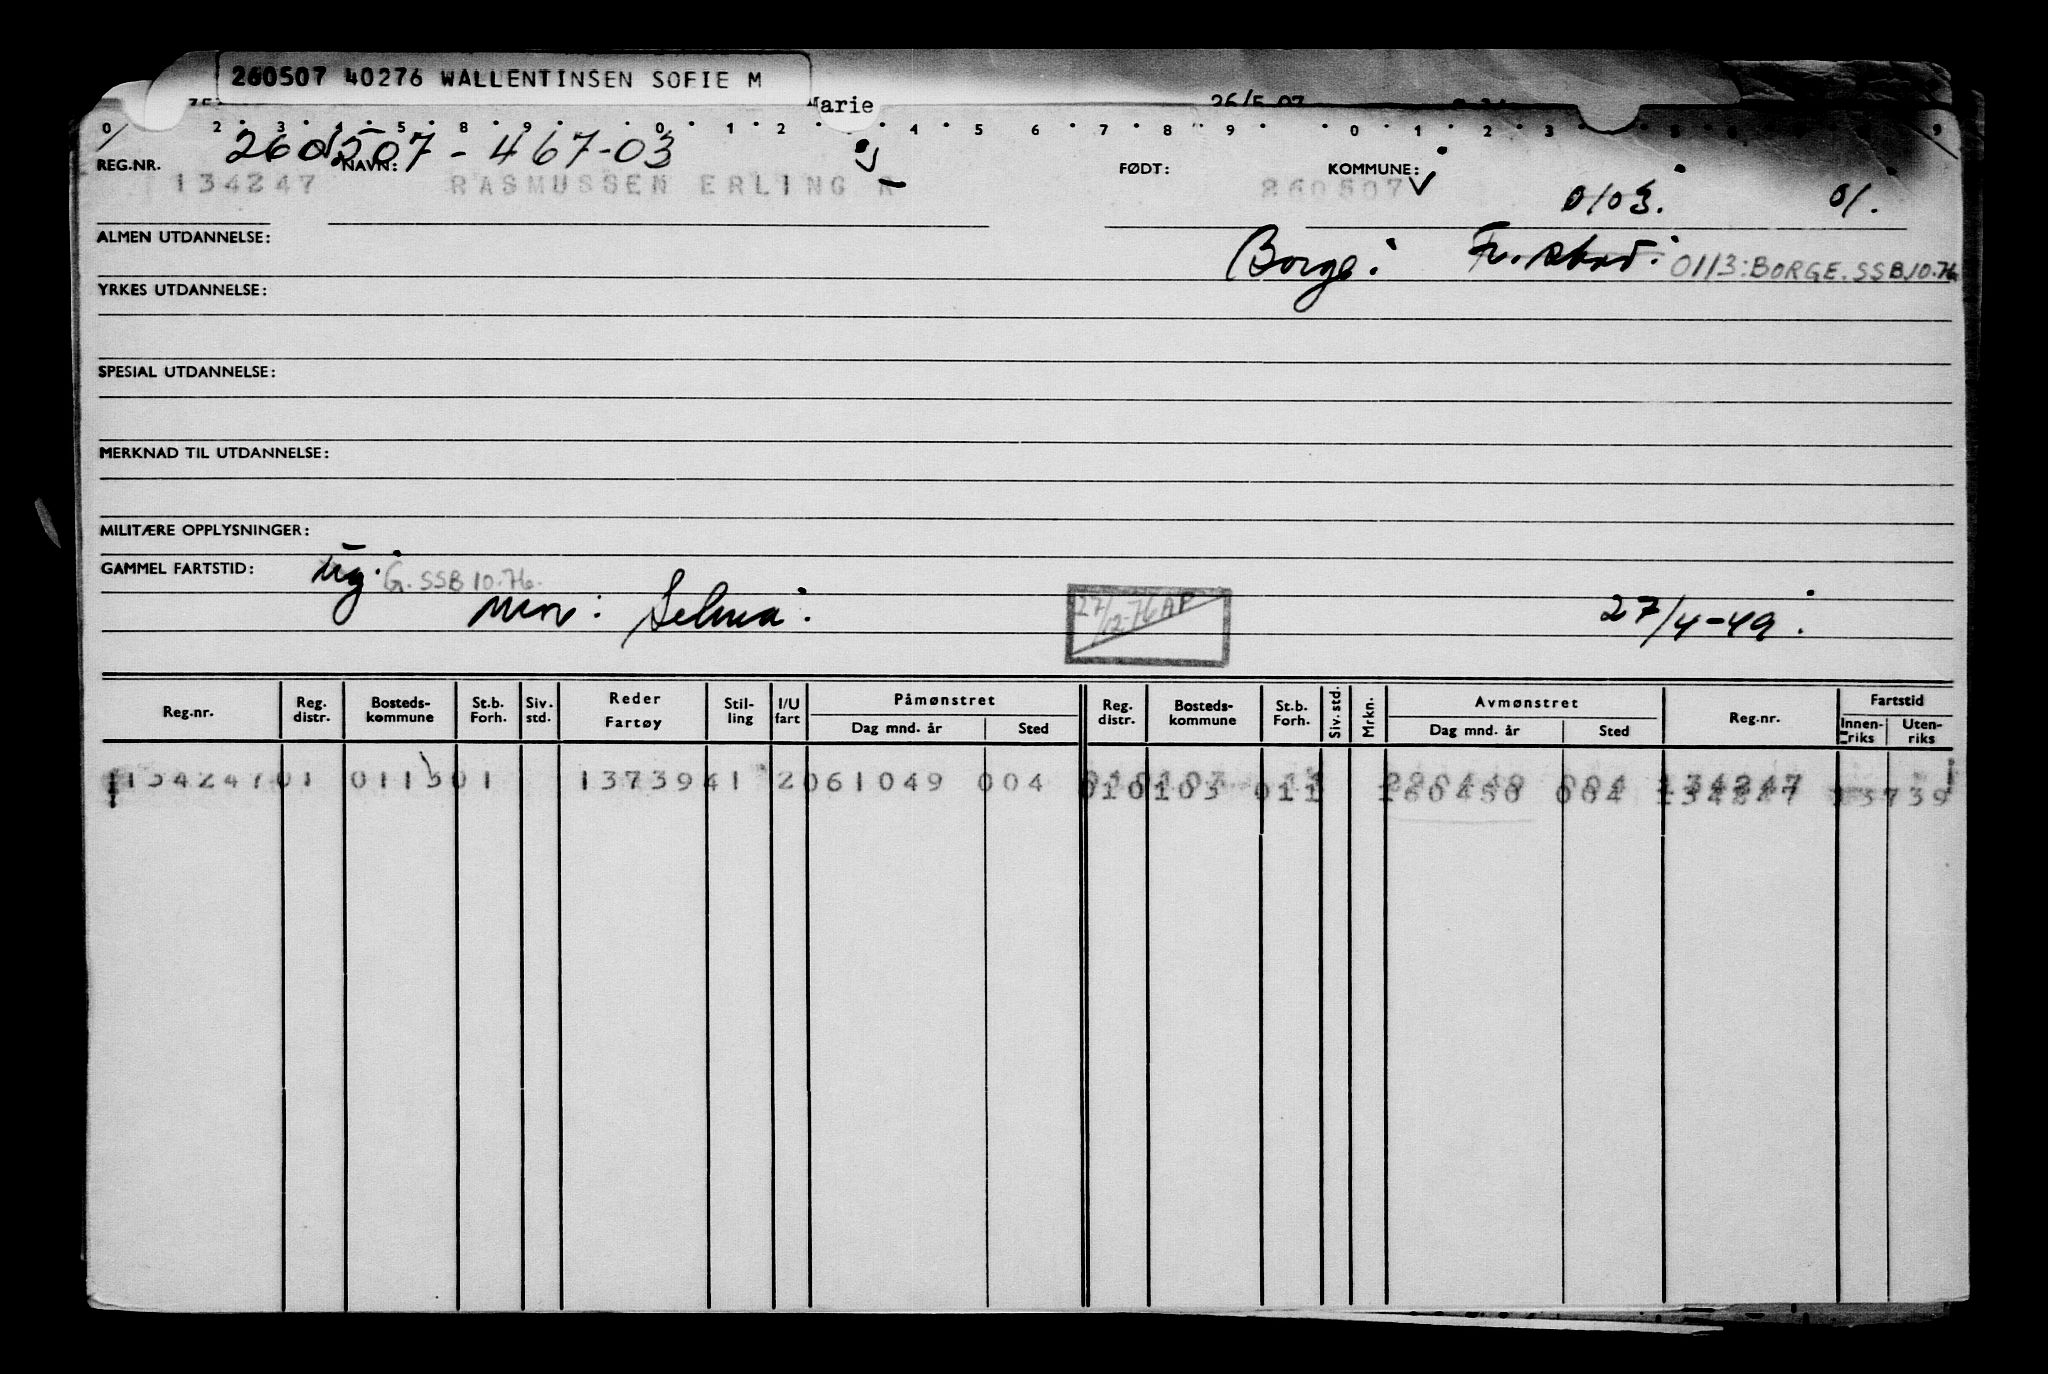 260507 40276 WALLENTINSEN SOFIE M
Marie 26/5 07
0 2 3 4 5 8 9 0 1 2 4 5 6 7 8 9 0 1 2 3 9
260507 - 467-03
REG.NR. NAVN: FØDT: KOMMUNE:
134247 RASMUSSEN ERLING R 260507
0103. 01.
ALMEN UTDANNELSE: Borge. Fr.stad. 0113:BORGE.SSB.10.76
YRKES UTDANNELSE:
SPESIAL UTDANNELSE:
MERKNAD TIL UTDANNELSE:
MILITÆRE OPPLYSNINGER:
GAMMEL FARTSTID: ug. G. SSB 10.76.
mor: Selma. 27/12-76 AP 27/4-49.
Reg.nr. Reg. distr. Bosteds- kommune St.b. Forh. Siv. std. Reder Fartøy Stil- ling I/U fart Påmønstret Dag mnd. år Sted Reg. distr. Bosteds- kommune St.b. Forh. Siv. std. Mrkn. Avmønstret Dag mnd. år Sted Reg.nr. Fartstid Innen- riks Uten- riks
134247 01 0113 01 13739 41 2 061049 004 010103 011 160450 004 134247 13739